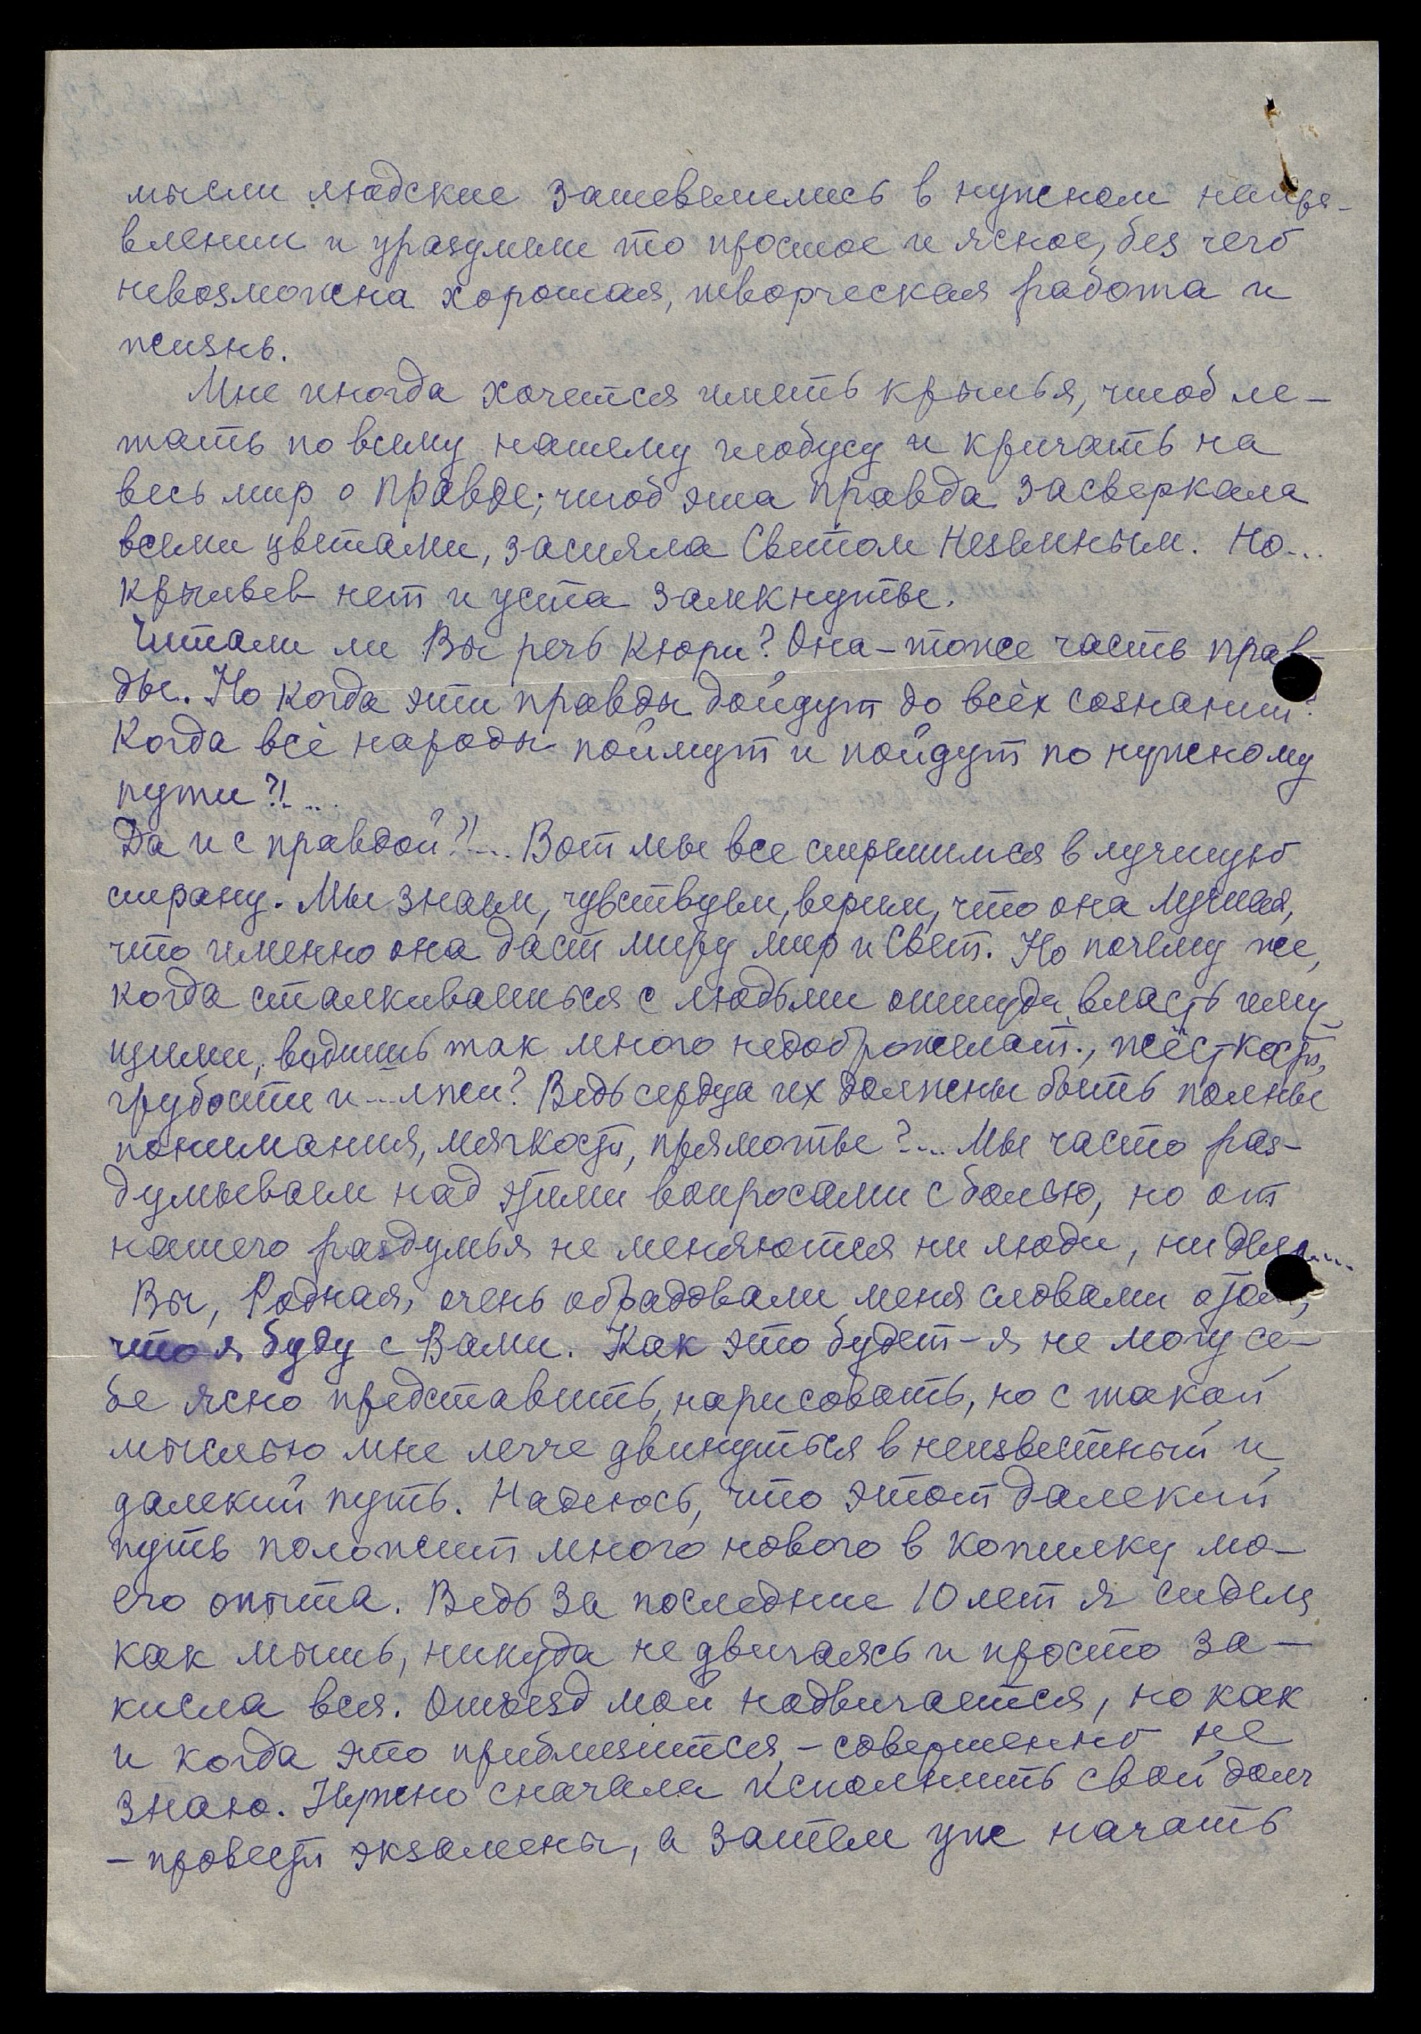 мысли людские зашевелились в нужном напра-
влении и уразумели то простое и ясное, без чего
невозможна хорошая, творческая работа и
жизнь.
Мне иногда хочется иметь крылья, чтоб ле-
тать по всему нашему глобусу и кричать на
весь мир о правде; чтоб эта правда засверкала
всеми цветами, засияла Светом Неземным. Но...
крыльев нет и уста замкнуты.
Читали ли Вы речь Кюри? Она – тоже часть прав-
ды. Но когда эти правды дойдут до всех сознаний?
Когда всё народы поймут и пойдут по нужному
пути?!...
Да и с правдой?!... Вот мы все стремимся в лучшую
страну. Мы знаем, чувствуем, верим, что она лучшая,
что именно она даст миру мир и Свет. Но почему же,
когда сталкиваешься с людьми оттуда, власть иму-
щими, видишь так много недоброжелат., жёсткости,
грубости и... лжи? Ведь сердца их должны быть полны
понимания, мягкости, прямоты?... Мы часто раз-
думываем над этими вопросами с болью, но от
нашего раздумья не меняются ни люди, ни дела...
Вы, Родная, очень обрадовали меня словами о том,
что я буду с Вами. Как это будет – я не могу се-
бе ясно представить, нарисовать, но с такой
мыслью мне легче двинуться в неизвестный и
далекий путь. Надеюсь, что этот далекий
путь положит много нового в копилку мо-
его опыта. Ведь за последние 10 лет я сидела
как мышь, никуда не двигаясь и просто за-
кисла вся. Отъезд мой надвигается, но как
и когда это приблизится – совершенно не
знаю. Нужно сначала исполнить свой долг
– провести экзамены, а затем уже начать